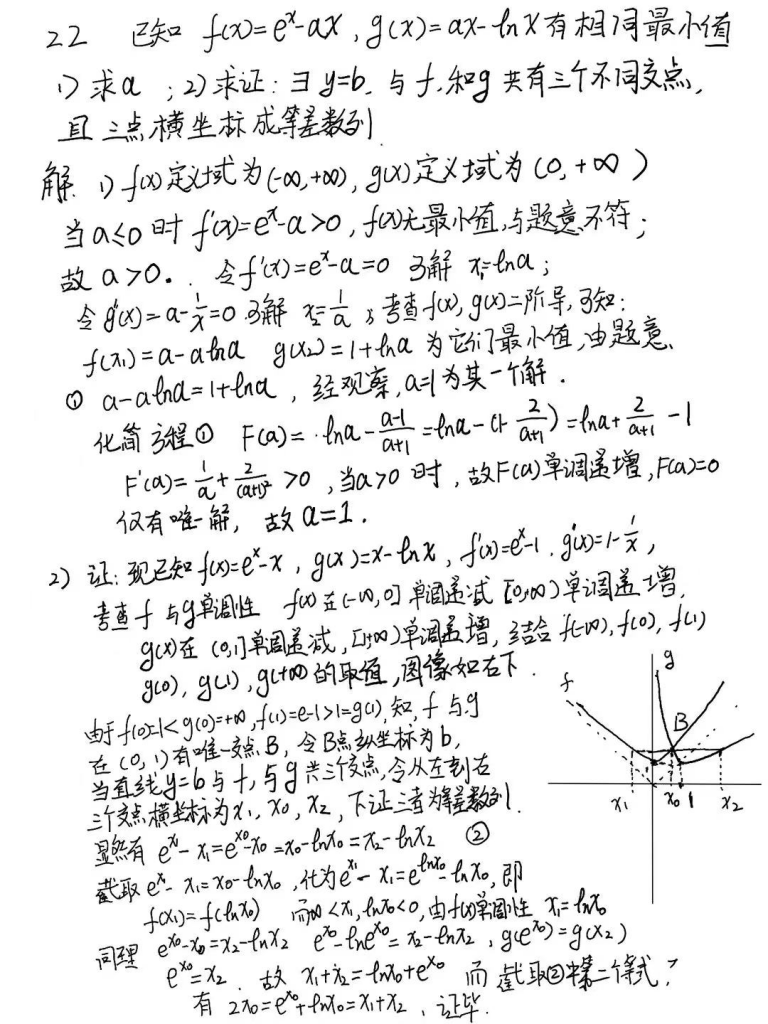 22 已知 f(x)=e^x-ax, g(x)=ax-lnx 有相同最小值
1) 求a ; 2) 求证: ∃ y=b. 与 f, 和g 共有三个不同交点,
且 三点横坐标成等差数列.
解. 1) f(x)定义域为(-∞,+∞), g(x)定义域为(0,+∞)
当a≤0时 f'(x)=e^x-a>0, f(x)无最小值,与题意不符;
故 a>0. 令f'(x)=e^x-a=0 可解 x₁=lna;
令g'(x)=a-1/x=0可解 x₂=1/a; 考查f(x), g(x)二阶导,可知:
f(x₁)=a-alna g(x₂)=1+lna 为它们最小值,由题意、
① a-alna=1+lna, 经观察, a=1为其一个解.
化简方程① F(a)=lna-(a-1)/(a+1)=lna-(1-2/(a+1))=lna+2/(a+1)-1
F'(a)=1/a+2/(a+1)²>0, 当a>0时, 故F(a)单调递增, F(a)=0
仅有唯一解, 故a=1.
2) 证: 现已知 f(x)=e^x-x, g(x)=x-lnx, f'(x)=e^x-1. g'(x)=1-1/x,
考查f与g单调性 f(x)在(-∞,0]单调递减 [0,+∞)单调递增,
g(x)在(0,1]单调递减, [1,+∞)单调递增, 结合f(-∞), f(0), f(1)
g(0), g(1), g(+∞)的取值,图像如右下.
由于f(0)=1<g(0)=+∞, f(1)=e-1>1=g(1), 知, f与g
在(0,1)有唯一交点B, 令B点纵坐标为b,
当直线y=b与f,与g共三个交点,令从左到右
三个交点横坐标为x₁, x₀, x₂, 下证三者为等差数列.
显然有 e^x₁-x₁=e^x₀-x₀=x₀-lnx₀=x₂-lnx₂ ②
截取e^x₁-x₁=x₀-lnx₀, 化为e^x₁-x₁=e^lnx₀-lnx₀, 即
f(x₁)=f(lnx₀) 而-∞<x₁,lnx₀<0, 由f(x)单调性 x₁=lnx₀
同理 e^x₀-x₀=x₂-lnx₂ e^x₀-lne^x₀=x₂-lnx₂, g(e^x₀)=g(x₂)
e^x₀=x₂. 故 x₁+x₂=lnx₀+e^x₀ 而 截取②中第二个等式,
有 2x₀=e^x₀+lnx₀=x₁+x₂, 证毕.
f
g
B
x₁ x₀ 1 x₂